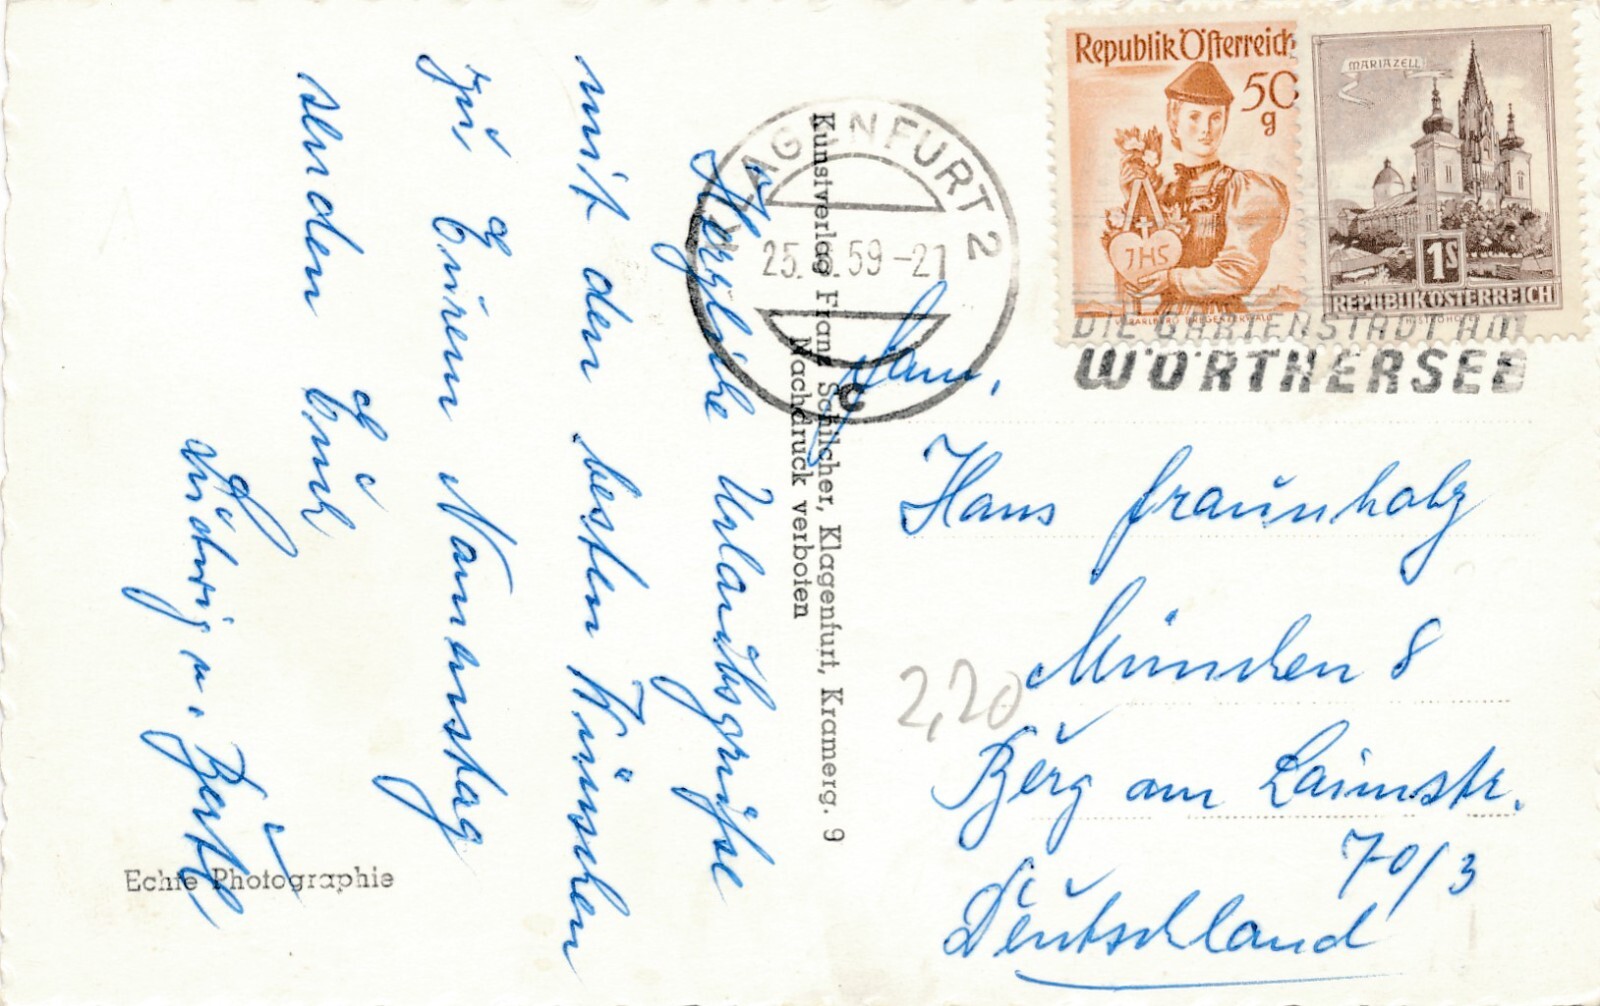 Herzliche Urlaubsgrüße
mit den besten Wünschen
zu Eurem Namenstag
senden Euch
Ludwig u. Bertl
Echte Photographie
Kunstverlag Franz Schilcher, Klagenfurt, Kramerg. 9
Nachdruck verboten
KLAGENFURT 2
25. .59-21
c
Republik Österreich
50
g
JHS
MARIAZELL
1S
REPUBLIK ÖSTERREICH
DIE GARTENSTADT AM
WÖRTHERSEE
Fam.
Hans Fraunholz
München 8
Berg am Laimstr.
70/3
Deutschland
2,20